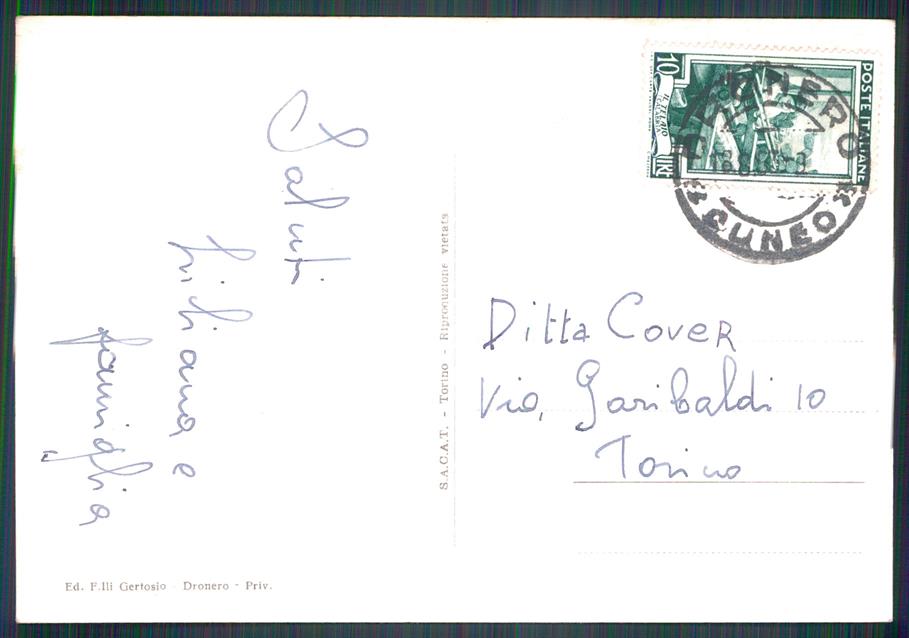 Saluti
Liliana e
famiglia
Ed. F.lli Gertosio - Dronero - Priv.
S.A.C.A.T. - Torino - Riproduzione vietata
POSTE ITALIANE
10
LIRE
IL TELAIO
DRONERO
CUNEO
Ditta Cover
Via, Garibaldi 10
Torino